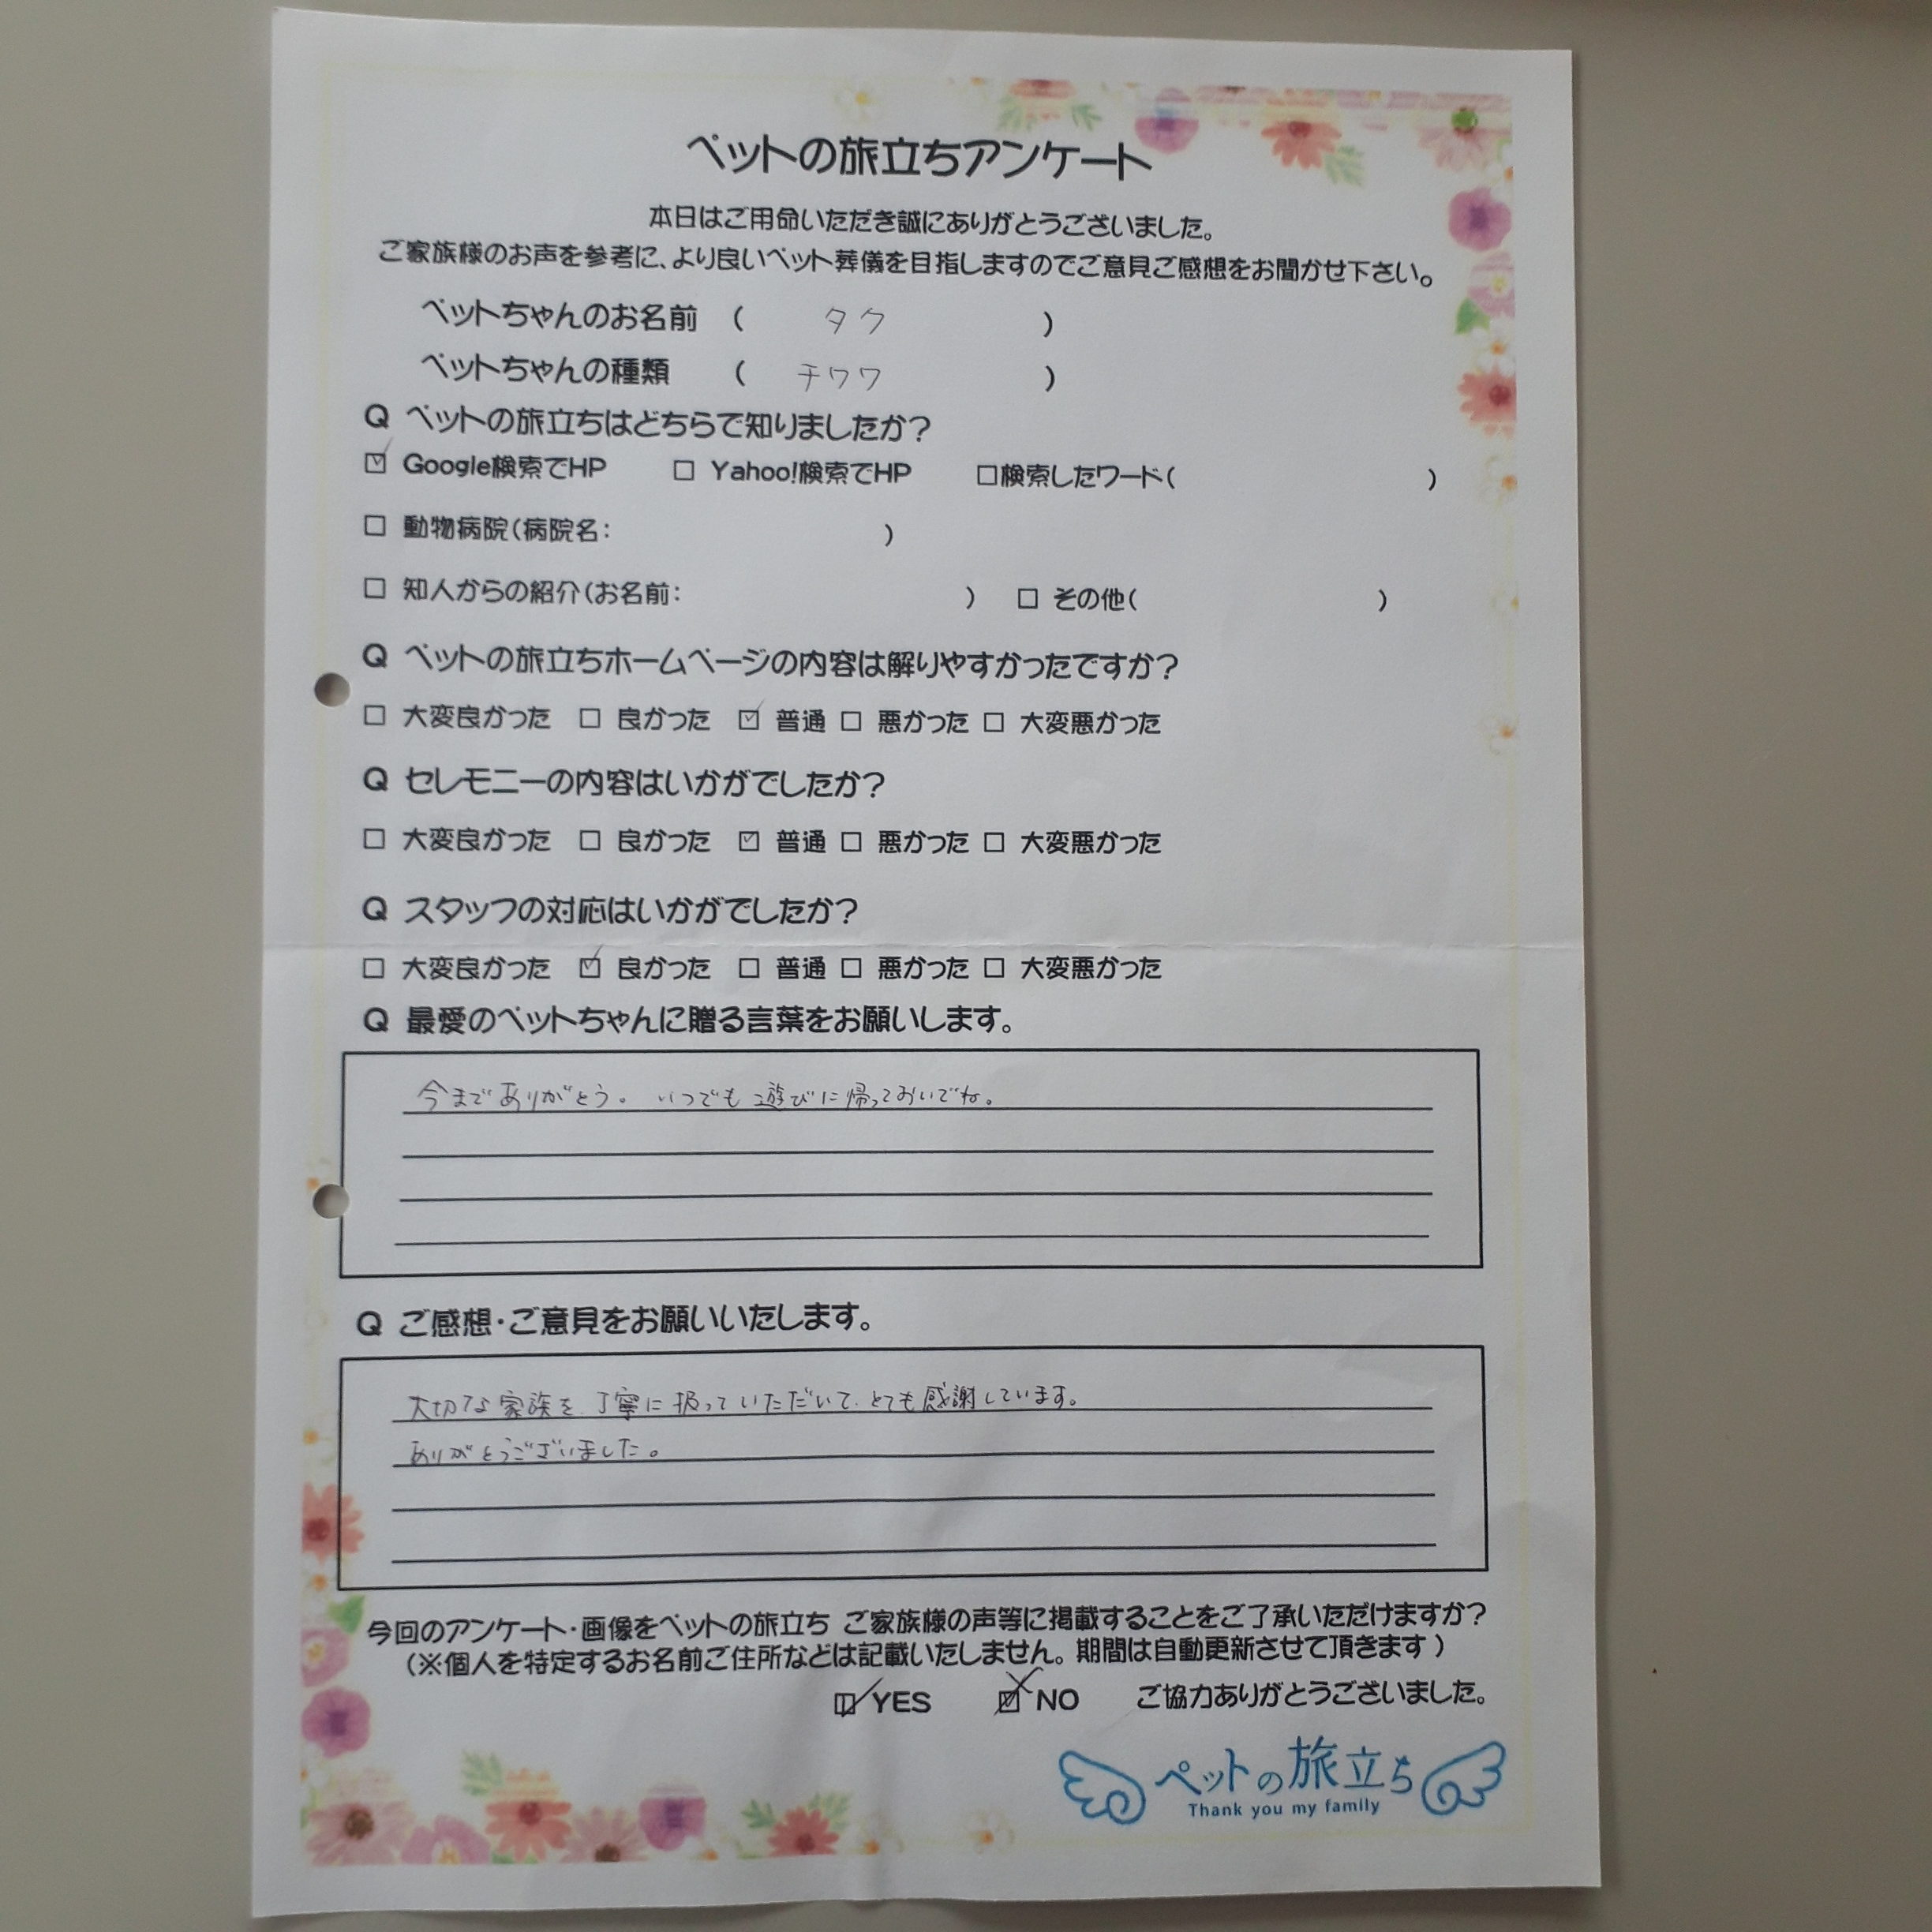 ペットの旅立ちアンケート
本日はご用命いただき誠にありがとうございました。
ご家族様のお声を参考に、より良いペット葬儀を目指しますのでご意見ご感想をお聞かせ下さい。
ペットちゃんのお名前 ( タク )
ペットちゃんの種類 ( チワワ )
Q ペットの旅立ちはどちらで知りましたか?
☑ Google検索でHP □ Yahoo!検索でHP □検索したワード( )
□ 動物病院(病院名: )
□ 知人からの紹介(お名前: ) □ その他( )
Q ペットの旅立ちホームページの内容は解りやすかったですか?
□ 大変良かった □ 良かった ☑ 普通 □ 悪かった □ 大変悪かった
Q セレモニーの内容はいかがでしたか?
□ 大変良かった □ 良かった ☑ 普通 □ 悪かった □ 大変悪かった
Q スタッフの対応はいかがでしたか?
□ 大変良かった ☑ 良かった □ 普通 □ 悪かった □ 大変悪かった
Q 最愛のペットちゃんに贈る言葉をお願いします。
今までありがとう。いつでも遊びに帰っておいでね。
Q ご感想・ご意見をお願いいたします。
大切な家族を、丁寧に扱っていただいて、とても感謝しています。
ありがとうございました。
今回のアンケート・画像をペットの旅立ち ご家族様の声等に掲載することをご了承いただけますか?
(※個人を特定するお名前ご住所などは記載いたしません。期間は自動更新させて頂きます)
☑ YES ☒ NO ご協力ありがとうございました。
ペットの旅立ち
Thank you my family